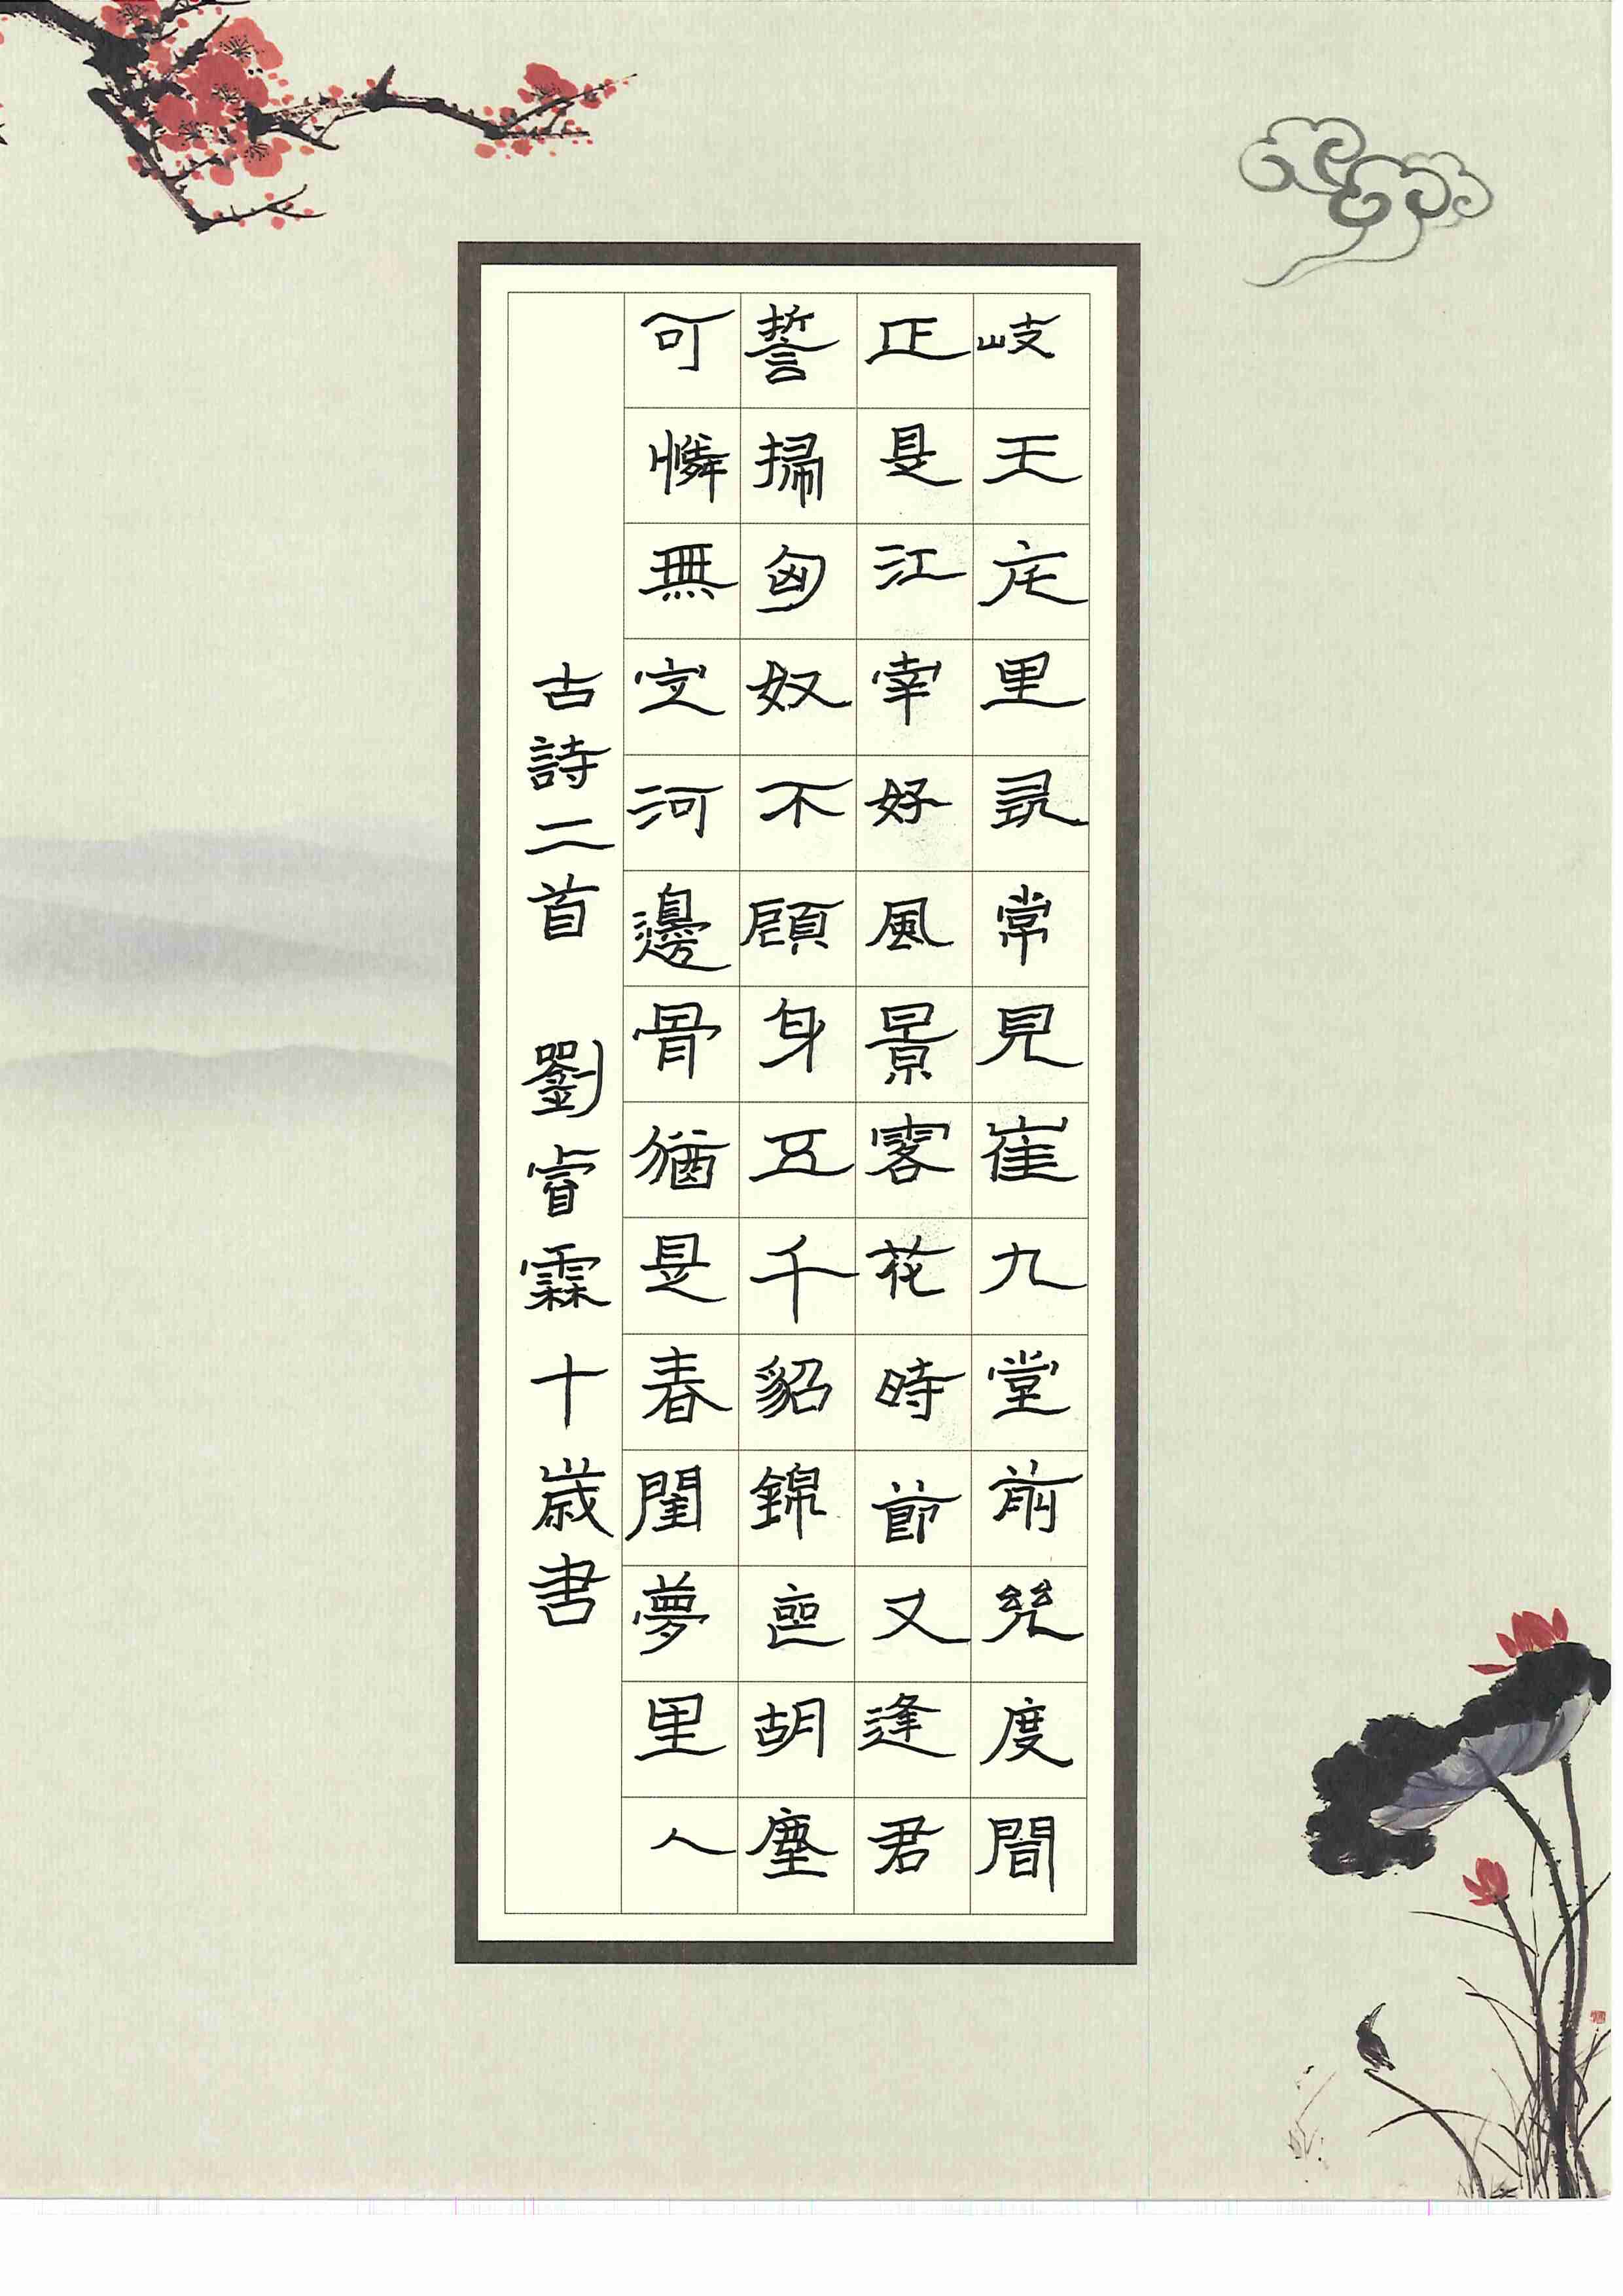 岐王宅里尋常見崔九堂前幾度聞
正是江南好風景落花時節又逢君
誓掃匈奴不顧身五千貂錦喪胡塵
可憐無定河邊骨猶是春閨夢里人
古詩二首 劉睿霖十歲書